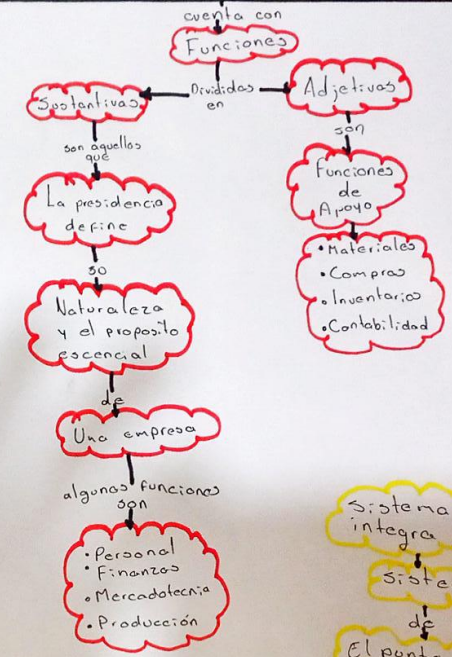 cuenta con
Funciones
Divididas
en
Sustantivas
son aquellas
que
La presidencia
define
so
Naturaleza
y el proposito
escencial
de
Una empresa
algunas funciones
son
• Personal
• Finanzas
• Mercadotecnia
• Producción
Adjetivas
son
Funciones
de
Apoyo
• Materiales
• Compras
• Inventarios
• Contabilidad
Sistema
integra
Siste
de
El punt